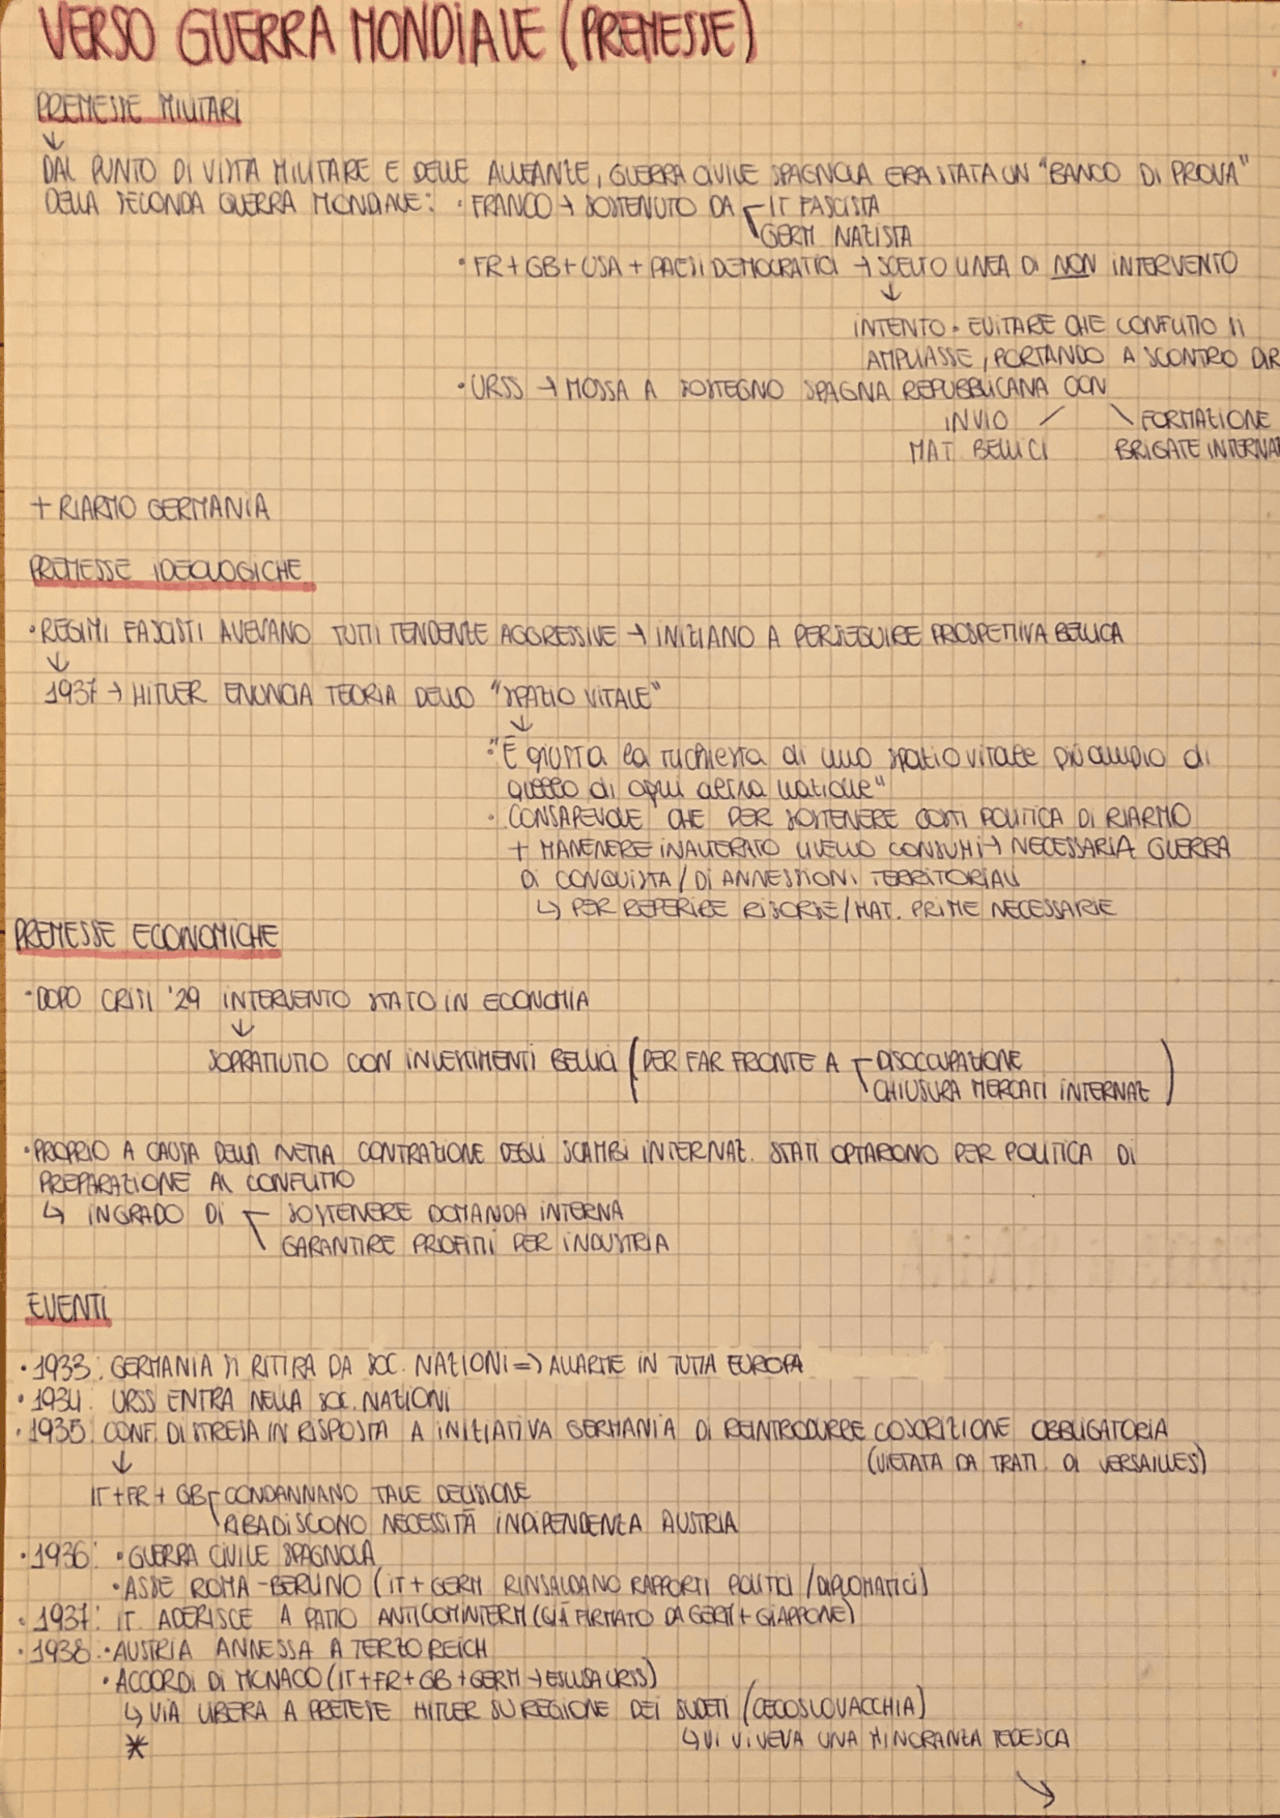 VERSO GUERRA MONDIALE (PREMESSE)
PREMESSE MILITARI
↓
DAL PUNTO DI VISTA MILITARE E DELLE ALLEANZE, GUERRA CIVILE SPAGNOLA ERA STATA UN "BANCO DI PROVA"
DELLA SECONDA GUERRA MONDIALE: • FRANCO → SOSTENUTO DA IT FASCISTA
GERM NAZISTA
• FR + GB + USA + PAESI DEMOCRATICI → SCELTO LINEA DI NON INTERVENTO
↓
INTENTO = EVITARE CHE CONFLITTO SI
AMPLIASSE, PORTANDO A SCONTRO DIR
• URSS → MOSSA A SOSTEGNO SPAGNA REPUBBLICANA CON
INVIO / \ FORMAZIONE
MAT. BELLICI BRIGATE INTERNAZ
+ RIARMO GERMANIA
PREMESSE IDEOLOGICHE
• REGIMI FASCISTI AVEVANO TUTTI TENDENZE AGGRESSIVE → INIZIANO A PERSEGUIRE PROSPETTIVA BELLICA
↓
1937 → HITLER ENUNCIA TEORIA DELLO "SPAZIO VITALE"
↓
• "È giusta la richiesta di uno spazio vitale più ampio di
quello di ogni altra nazione"
• CONSAPEVOLE CHE PER SOSTENERE COSTI POLITICA DI RIARMO
+ MANENERE INALTERATO LIVELLO CONSUMI → NECESSARIA GUERRA
DI CONQUISTA / DI ANNESSIONI TERRITORIALI
↳ PER REPERIRE RISORSE / MAT. PRIME NECESSARIE
PREMESSE ECONOMICHE
• DOPO CRISI '29 INTERVENTO STATO IN ECONOMIA
↓
SOPRATTUTTO CON INVESTIMENTI BELLICI (PER FAR FRONTE A DISOCCUPAZIONE
CHIUSURA MERCATI INTERNAZ)
• PROPRIO A CAUSA DELLA NETTA CONTRAZIONE DEGLI SCAMBI INTERNAZ. STATI OPTARONO PER POLITICA DI
PREPARAZIONE AL CONFLITTO
↳ IN GRADO DI SOSTENERE DOMANDA INTERNA
GARANTIRE PROFITTI PER INDUSTRIA
EVENTI
• 1933: GERMANIA SI RITIRA DA SOC. NAZIONI => ALLARME IN TUTTA EUROPA
• 1934: URSS ENTRA NELLA SOC. NAZIONI
• 1935: CONF. DI STRESA IN RISPOSTA A INIZIATIVA GERMANIA DI REINTRODURRE COSCRIZIONE OBBLIGATORIA
↓ (VIETATA DA TRATT. DI VERSAILLES)
IT + FR + GB CONDANNANO TALE DECISIONE
RIBADISCONO NECESSITÀ INDIPENDENZA AUSTRIA
• 1936: • GUERRA CIVILE SPAGNOLA
• ASSE ROMA - BERLINO (IT + GERM RINSALDANO RAPPORTI POLITICI / DIPLOMATICI)
• 1937: IT. ADERISCE A PATTO ANTICOMINTERM (GIÀ FIRMATO DA GERM + GIAPPONE)
• 1938: • AUSTRIA ANNESSA A TERZO REICH
• ACCORDI DI MONACO (IT + FR + GB + GERM → ESCLUSA URSS)
↳ VIA LIBERA A PRETESE HITLER SU REGIONE DEI SUDETI (CECOSLOVACCHIA)
* ↳ VI VIVEVA UNA MINORANZA TEDESCA